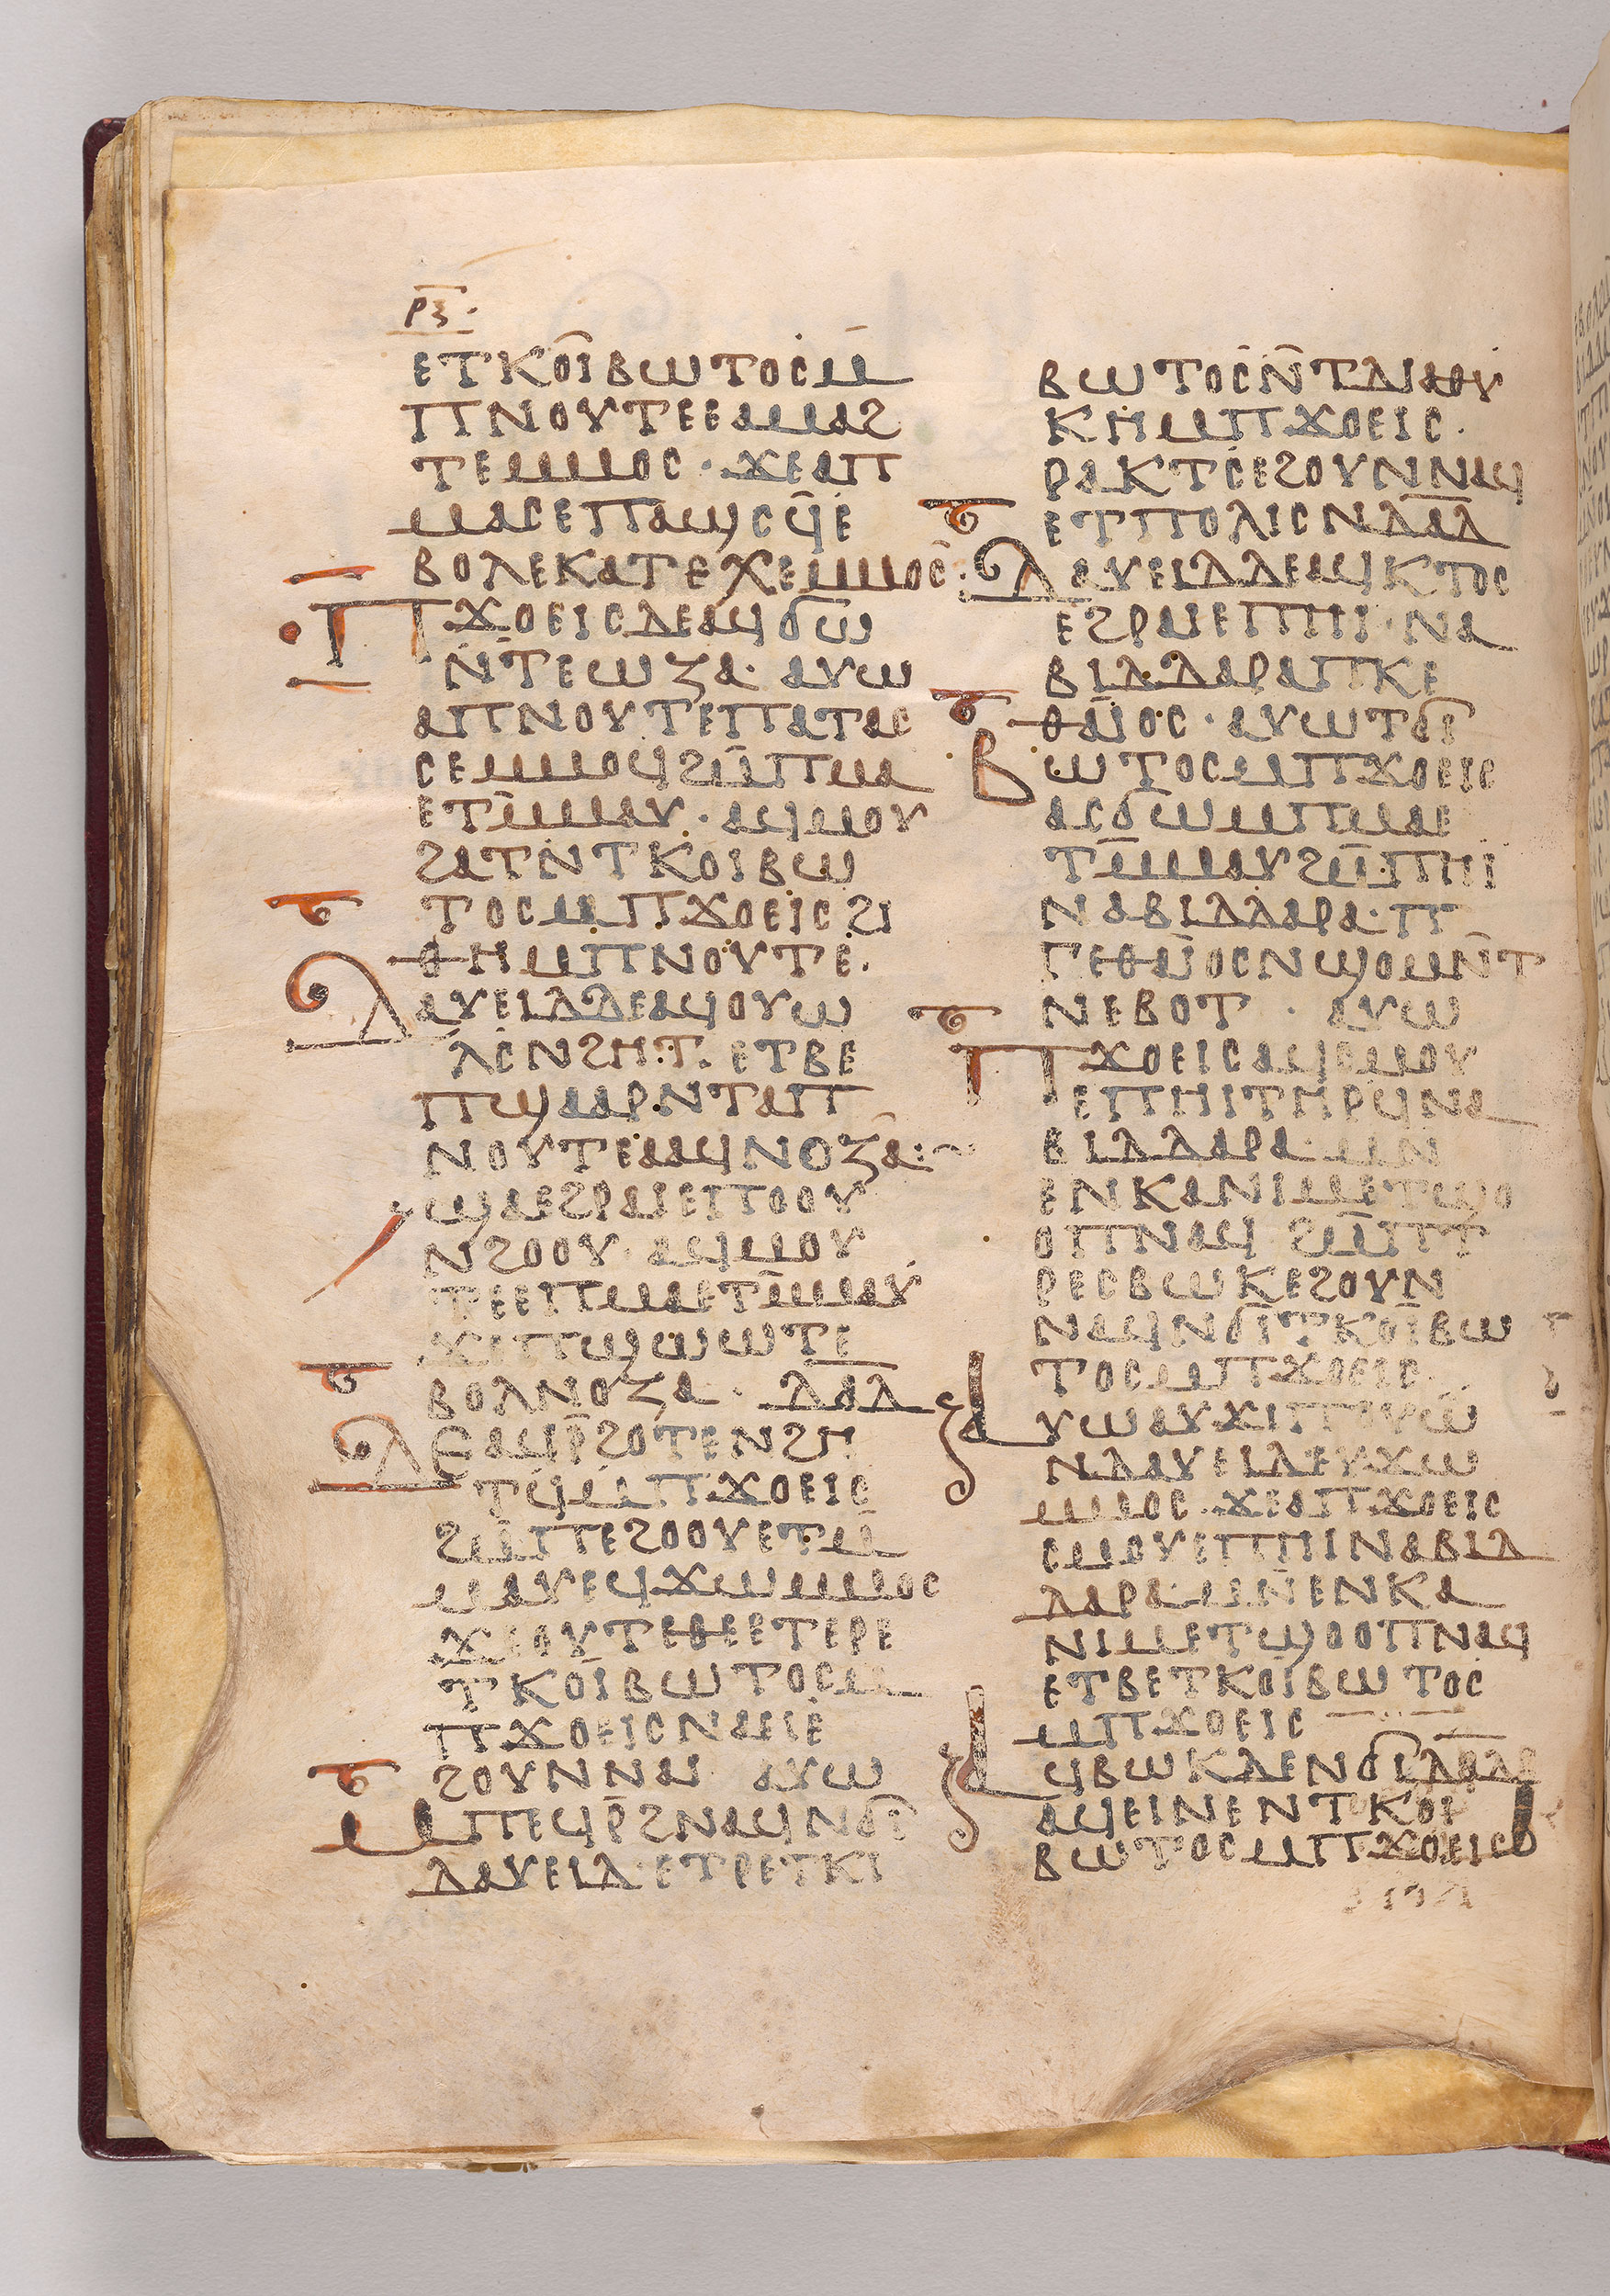 ⲣⲝ
ⲉⲧⲕⲟⲓⲃⲱⲧⲟⲥⲙ
ⲡⲛⲟⲩⲧⲉⲉⲁⲙⲁϩ
ⲧⲉⲙⲙⲟⲥ · ϫⲉⲁⲡ
ⲙⲁⲥⲉⲡⲁϣⲥϥⲉ
ⲃⲟⲗⲉⲕⲁⲧⲉⲭⲉⲙⲙⲟⲥ·
ⲡϫⲟⲉⲓⲥⲇⲉⲁϥϭⲱ
ⲛⲧⲉⲱⲍⲁ · ⲁⲩⲱ
ⲁⲡⲛⲟⲩⲧⲉⲡⲁⲧⲁⲥ
ⲥⲉⲙⲙⲟϥϩⲙ̄ⲡⲙⲁ
ⲉⲧⲙ̄ⲙⲁⲩ · ⲁϥⲙⲟⲩ
ϩⲁⲧⲛⲧⲕⲟⲓⲃⲱ
ⲧⲟⲥⲙⲡϫⲟⲉⲓⲥϩⲓ
ⲑⲏⲙⲡⲛⲟⲩⲧⲉ ·
ⲇⲁⲩⲉⲓⲇⲇⲉⲁϥⲟⲩⲱ
ⲗⲥⲛϩⲏⲧ · ⲉⲧⲃⲉ
ⲡϣⲁⲁⲣⲛⲧⲁⲡ
ⲛⲟⲩⲧⲉⲁⲁϥⲛⲟⲍⲁ :~
ϣⲁⲉϩⲣⲁⲓⲉⲡⲟⲟⲩ
ⲛϩⲟⲟⲩ · ⲁϥⲙⲟⲩ
ⲧⲉⲉⲡⲙⲁⲉⲧⲙ̄ⲙⲁⲩ
ϫⲉⲡϣⲱⲱⲧⲉ
ⲃⲟⲗⲛⲟⲍⲁ · ⲇⲁⲇ
ⲇⲉⲁϥⲣ̄ϩⲟⲧⲉⲛϩⲏ
ⲧϥⲙⲡϫⲟⲉⲓⲥ
ϩⲙ̄ⲡⲉϩⲟⲟⲩⲉⲧⲙ̄
ⲙⲁⲩⲉϥϫⲱⲙⲙⲟⲥ
ϫⲉⲟⲩⲧⲉⲑⲉⲉⲧⲉⲣⲉ
ⲧⲕⲟⲓⲃⲱⲧⲟⲥⲙ
ⲡϫⲟⲉⲓⲥⲛⲁⲉⲓⲉ
ϩⲟⲩⲛⲛⲁⲓ ⲁⲩⲱ
ⲙⲡⲉϥⲣ̄ϩⲛⲁϥⲛϭⲓ
ⲇⲁⲩⲉⲓⲇ · ⲉⲧⲣⲉⲧⲕⲓ
ⲃⲱⲧⲟⲥⲛ̄ⲧⲇⲓⲁⲑⲩ
ⲕⲏⲙⲡϫⲟⲉⲓⲥ ·
ⲣⲁⲕⲧⲥⲉϩⲟⲩⲛⲛⲁϥ
ⲉⲧⲡⲟⲗⲓⲥⲛⲇⲁ̄ⲇ
ⲇⲁⲩⲉⲓⲇⲇⲉⲁϥⲕⲧⲟⲥ
ⲉϩⲣⲁⲓⲉⲡⲏⲓ · ⲛⲁ
ⲃⲓⲇⲇⲁⲣⲁⲡⲕⲉ
ⲑⲁⲓⲟⲥ · ⲁⲩⲱⲧϭⲓ
ⲃⲱⲧⲟⲥⲙⲡϫⲟⲉⲓⲥ
ⲁⲥϭⲱⲙⲡⲙⲁⲉ
ⲧⲙ̄ⲙⲁⲩϩⲙ̄ⲡⲏⲓ
ⲛⲁⲃⲓⲇⲇⲁⲣⲁ · ⲡ
ⲅⲉⲑⲁⲓⲟⲥⲛϣⲟⲙⲛ̄ⲧ
ⲛⲉⲃⲟⲧ · ⲁⲩⲱ
ⲡϫⲟⲉⲓⲥⲁϥⲥⲙⲟⲩ
ⲉⲡⲏⲓⲧⲏⲣϥⲛⲁ
ⲃⲓⲇⲇⲁⲣⲁ · ⲙⲛ
ⲉⲛⲕⲁⲛⲓⲙⲉⲧϣⲟ
ⲟⲡⲛⲁϥ ϩⲙ̄ⲡⲧ
ⲣⲉⲥⲃⲱⲕⲉϩⲟⲩⲛ
ⲛⲁϥⲛϭⲓⲧⲕⲟⲓⲃⲱ
ⲧⲟⲥⲙⲡϫⲟⲉⲓⲥ
ⲁⲩⲱⲁⲩϫⲓⲡⲟⲩⲱ
ⲛⲇⲁⲩⲉⲓⲇⲉⲩϫⲱ
ⲙⲙⲟⲥ ϫⲉⲁⲡϫⲟⲉⲓⲥ
ⲥⲙⲟⲩⲉⲡⲏⲓⲛⲁⲃⲓⲇ
ⲇⲁⲣⲁ · ⲙⲛ̄ⲉⲛⲕⲁ
ⲛⲓⲙⲉⲧϣⲟⲟⲡⲛⲁϥ
ⲉⲧⲃⲉⲧⲕⲟⲓⲃⲱⲧⲟⲥ
ⲙⲡϫⲟⲉⲓⲥ
ⲁϥⲃⲱⲕⲇⲉⲛϭⲓⲇⲁⲇ
ⲁϥⲉⲓⲛⲉⲛⲧⲕⲟⲓ
ⲃⲱⲧⲟⲥⲙⲡϫⲟⲉⲓⲥ